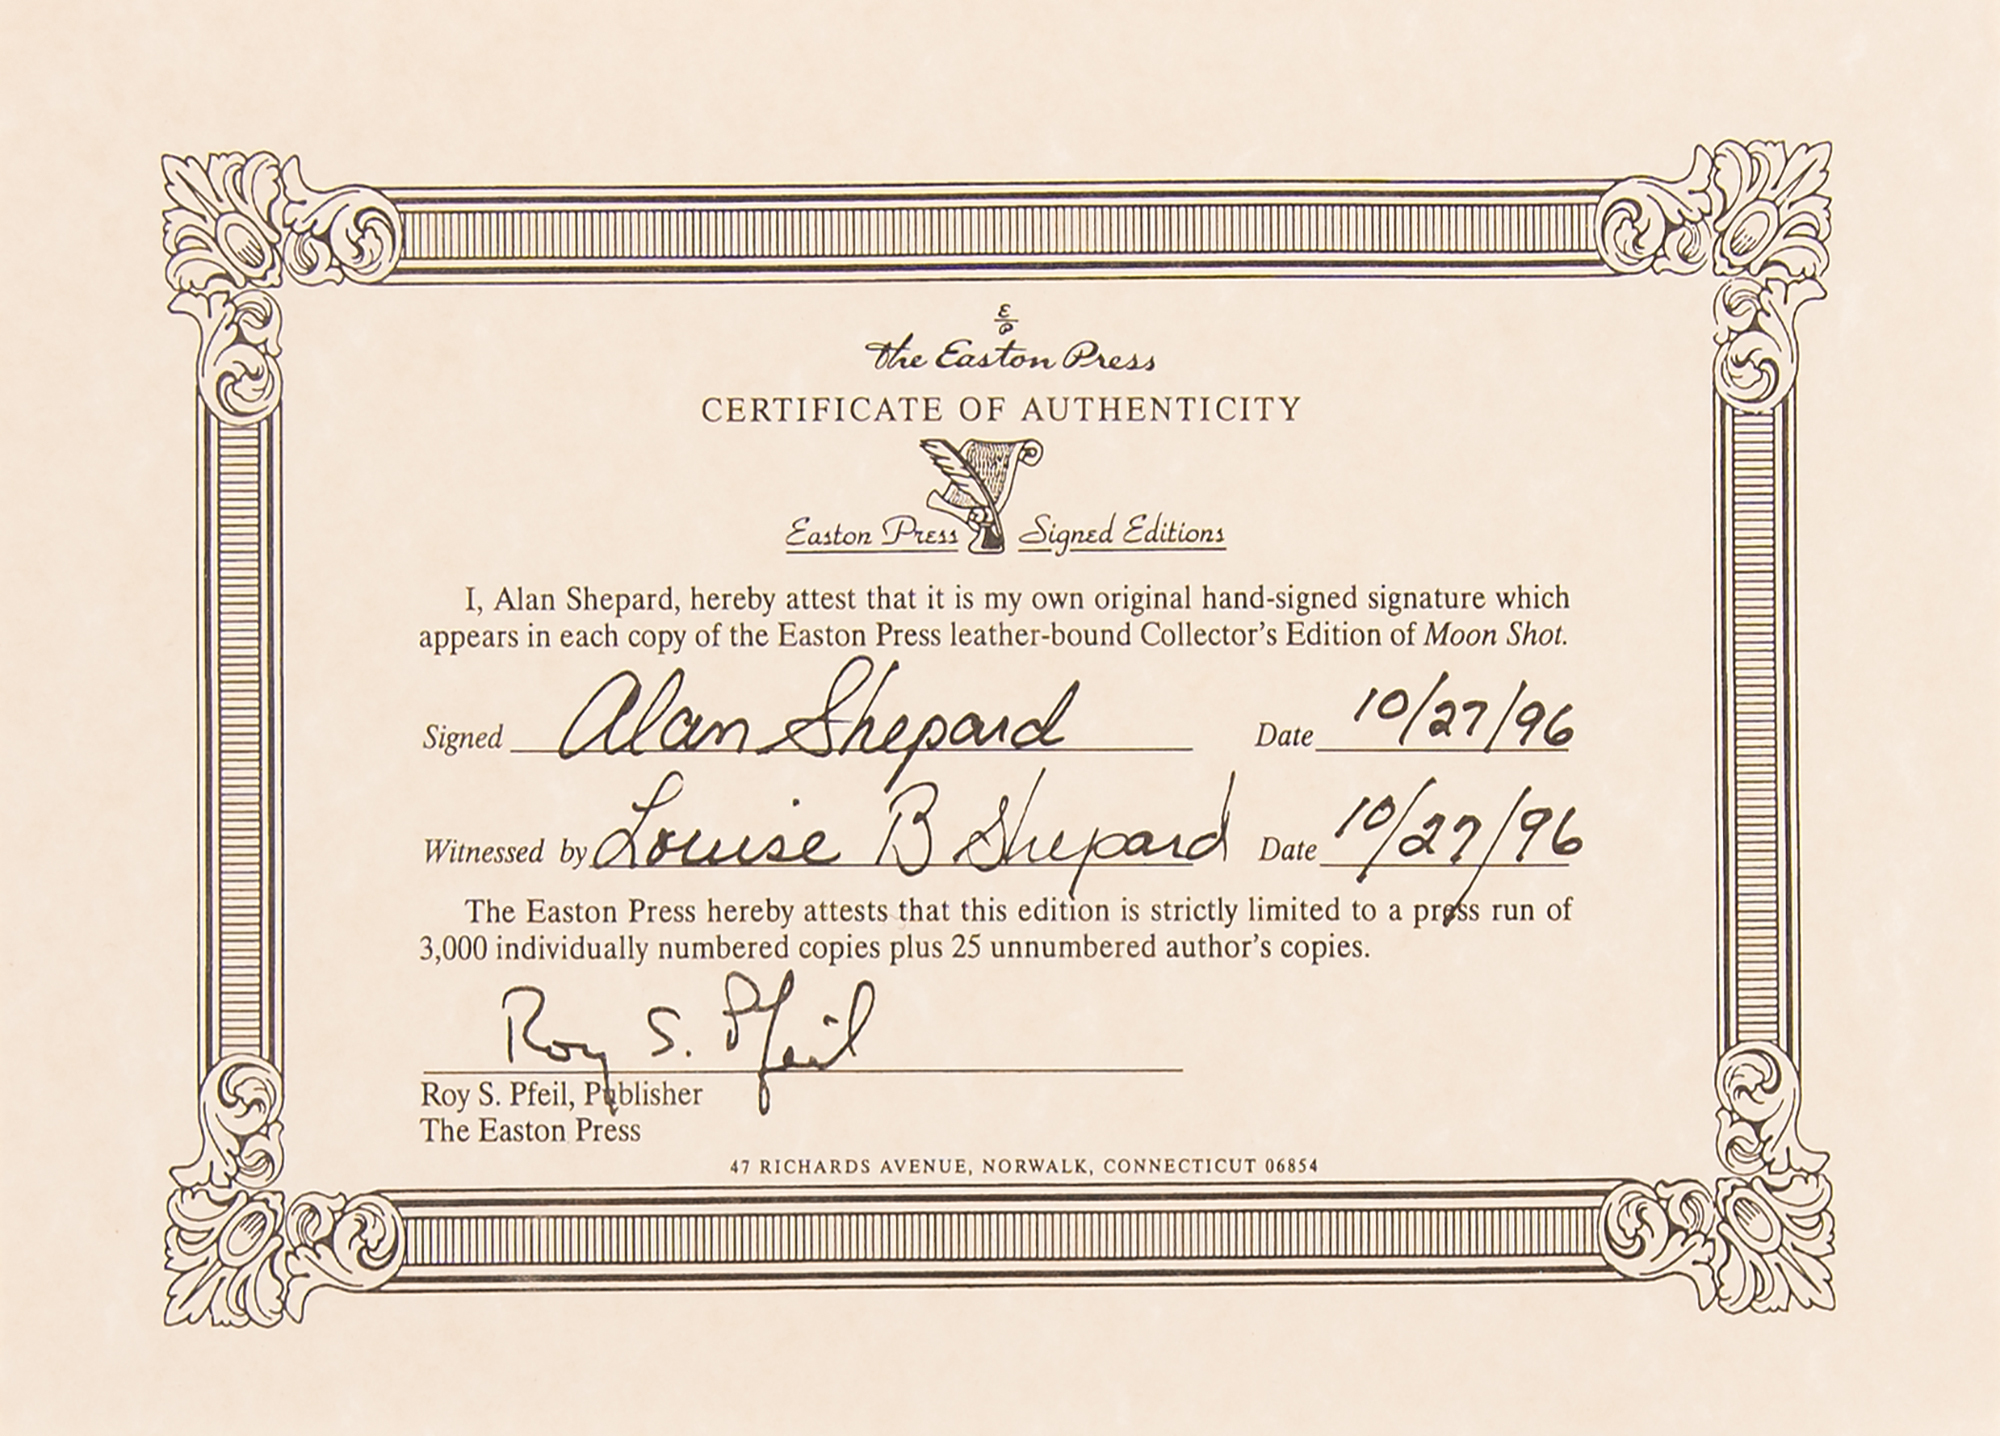 E
P
the Easton Press
CERTIFICATE OF AUTHENTICITY
Easton Press Signed Editions
I, Alan Shepard, hereby attest that it is my own original hand-signed signature which
appears in each copy of the Easton Press leather-bound Collector's Edition of Moon Shot.
Signed Alan Shepard Date 10/27/96
Witnessed by Louise B Shepard Date 10/27/96
The Easton Press hereby attests that this edition is strictly limited to a press run of
3,000 individually numbered copies plus 25 unnumbered author's copies.
Roy S. Pfeil
Roy S. Pfeil, Publisher
The Easton Press
47 RICHARDS AVENUE, NORWALK, CONNECTICUT 06854